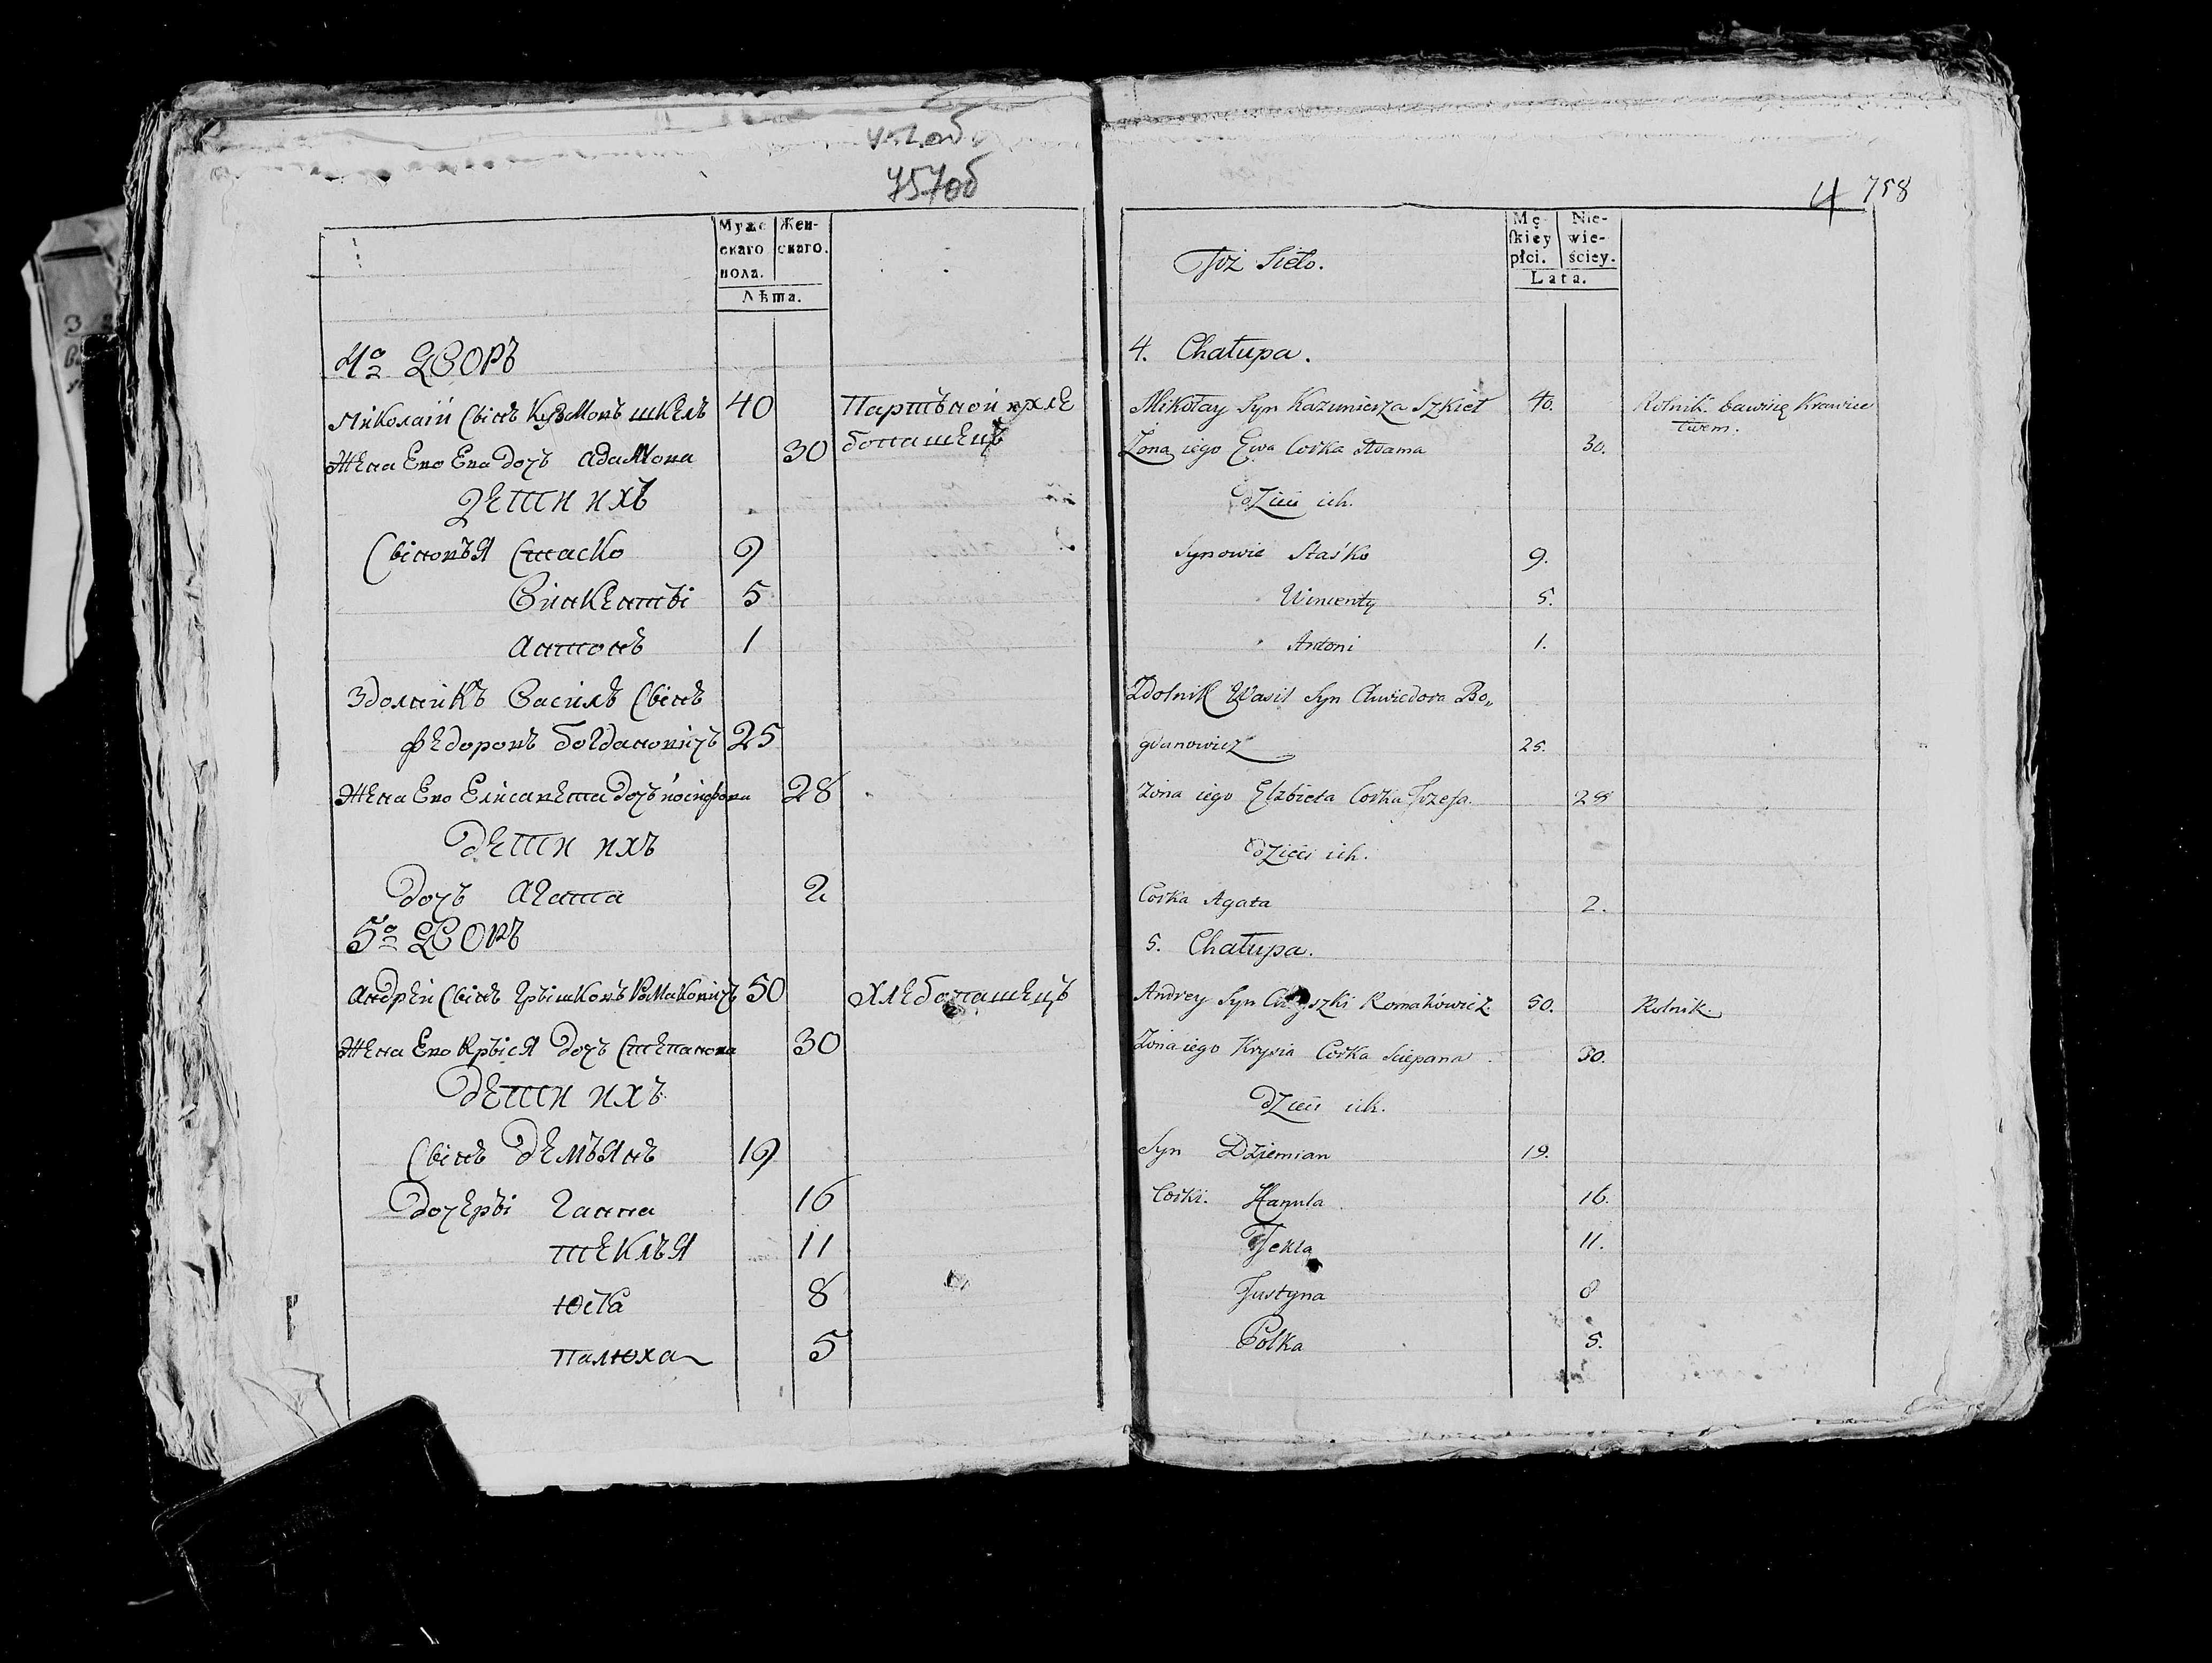 757об
Муже Жен-
скаго скаго.
пола.
Лѣта.
4о дворъ
Миколай Сынъ Кузьмовъ шкель 40 Партъной ихле
Жена Ево Ева дочь адамова 30 бопашецъ
дети ихъ
Сыновья Стаско 9
Винкенты 5
антонъ 1
Здольникъ Василь Сынъ
Федоровъ богдановичъ 25
Жена Ево Елисавета дочь иосифова 28
дети ихъ
дочь агата 2
5о дворъ
андрей Сынъ грышковъ Романовичъ 50 хлебопашецъ
Жена Ево крыся дочь Степанова 30
дети ихъ
Сынъ демьянъ 19
дочеры ганна 16
теклья 11
юста 8
палюха 5
4 758
Toż Sioło.
Mę- Nie-
skiey wie-
płci. ściey.
Lata.
4. Chałupa.
Mikołay Syn Kazimierza Szkiel 40. Rolnik bawiący Krawiec
twem.
Żona iego Ewa Corka Adama 30.
Dzieci ich.
Synowie Staśko 9.
Wincenty 5.
Antoni 1.
Zdolnik Wasil Syn Chwiedora Bo„
gdanowicz 25.
Żona iego Elzbieta Corka Jozefa. 28
Dzieci ich.
Corka Agata 2.
5. Chałupa.
Andrey Syn Romanowicz 50. Rolnik.
Żona iego Krysia Corka Sciepana 30.
Dzieci ich.
Syn Dziemian 19.
Corki. Hanula 16.
Tekla 11.
Justyna 8
Polka 5.